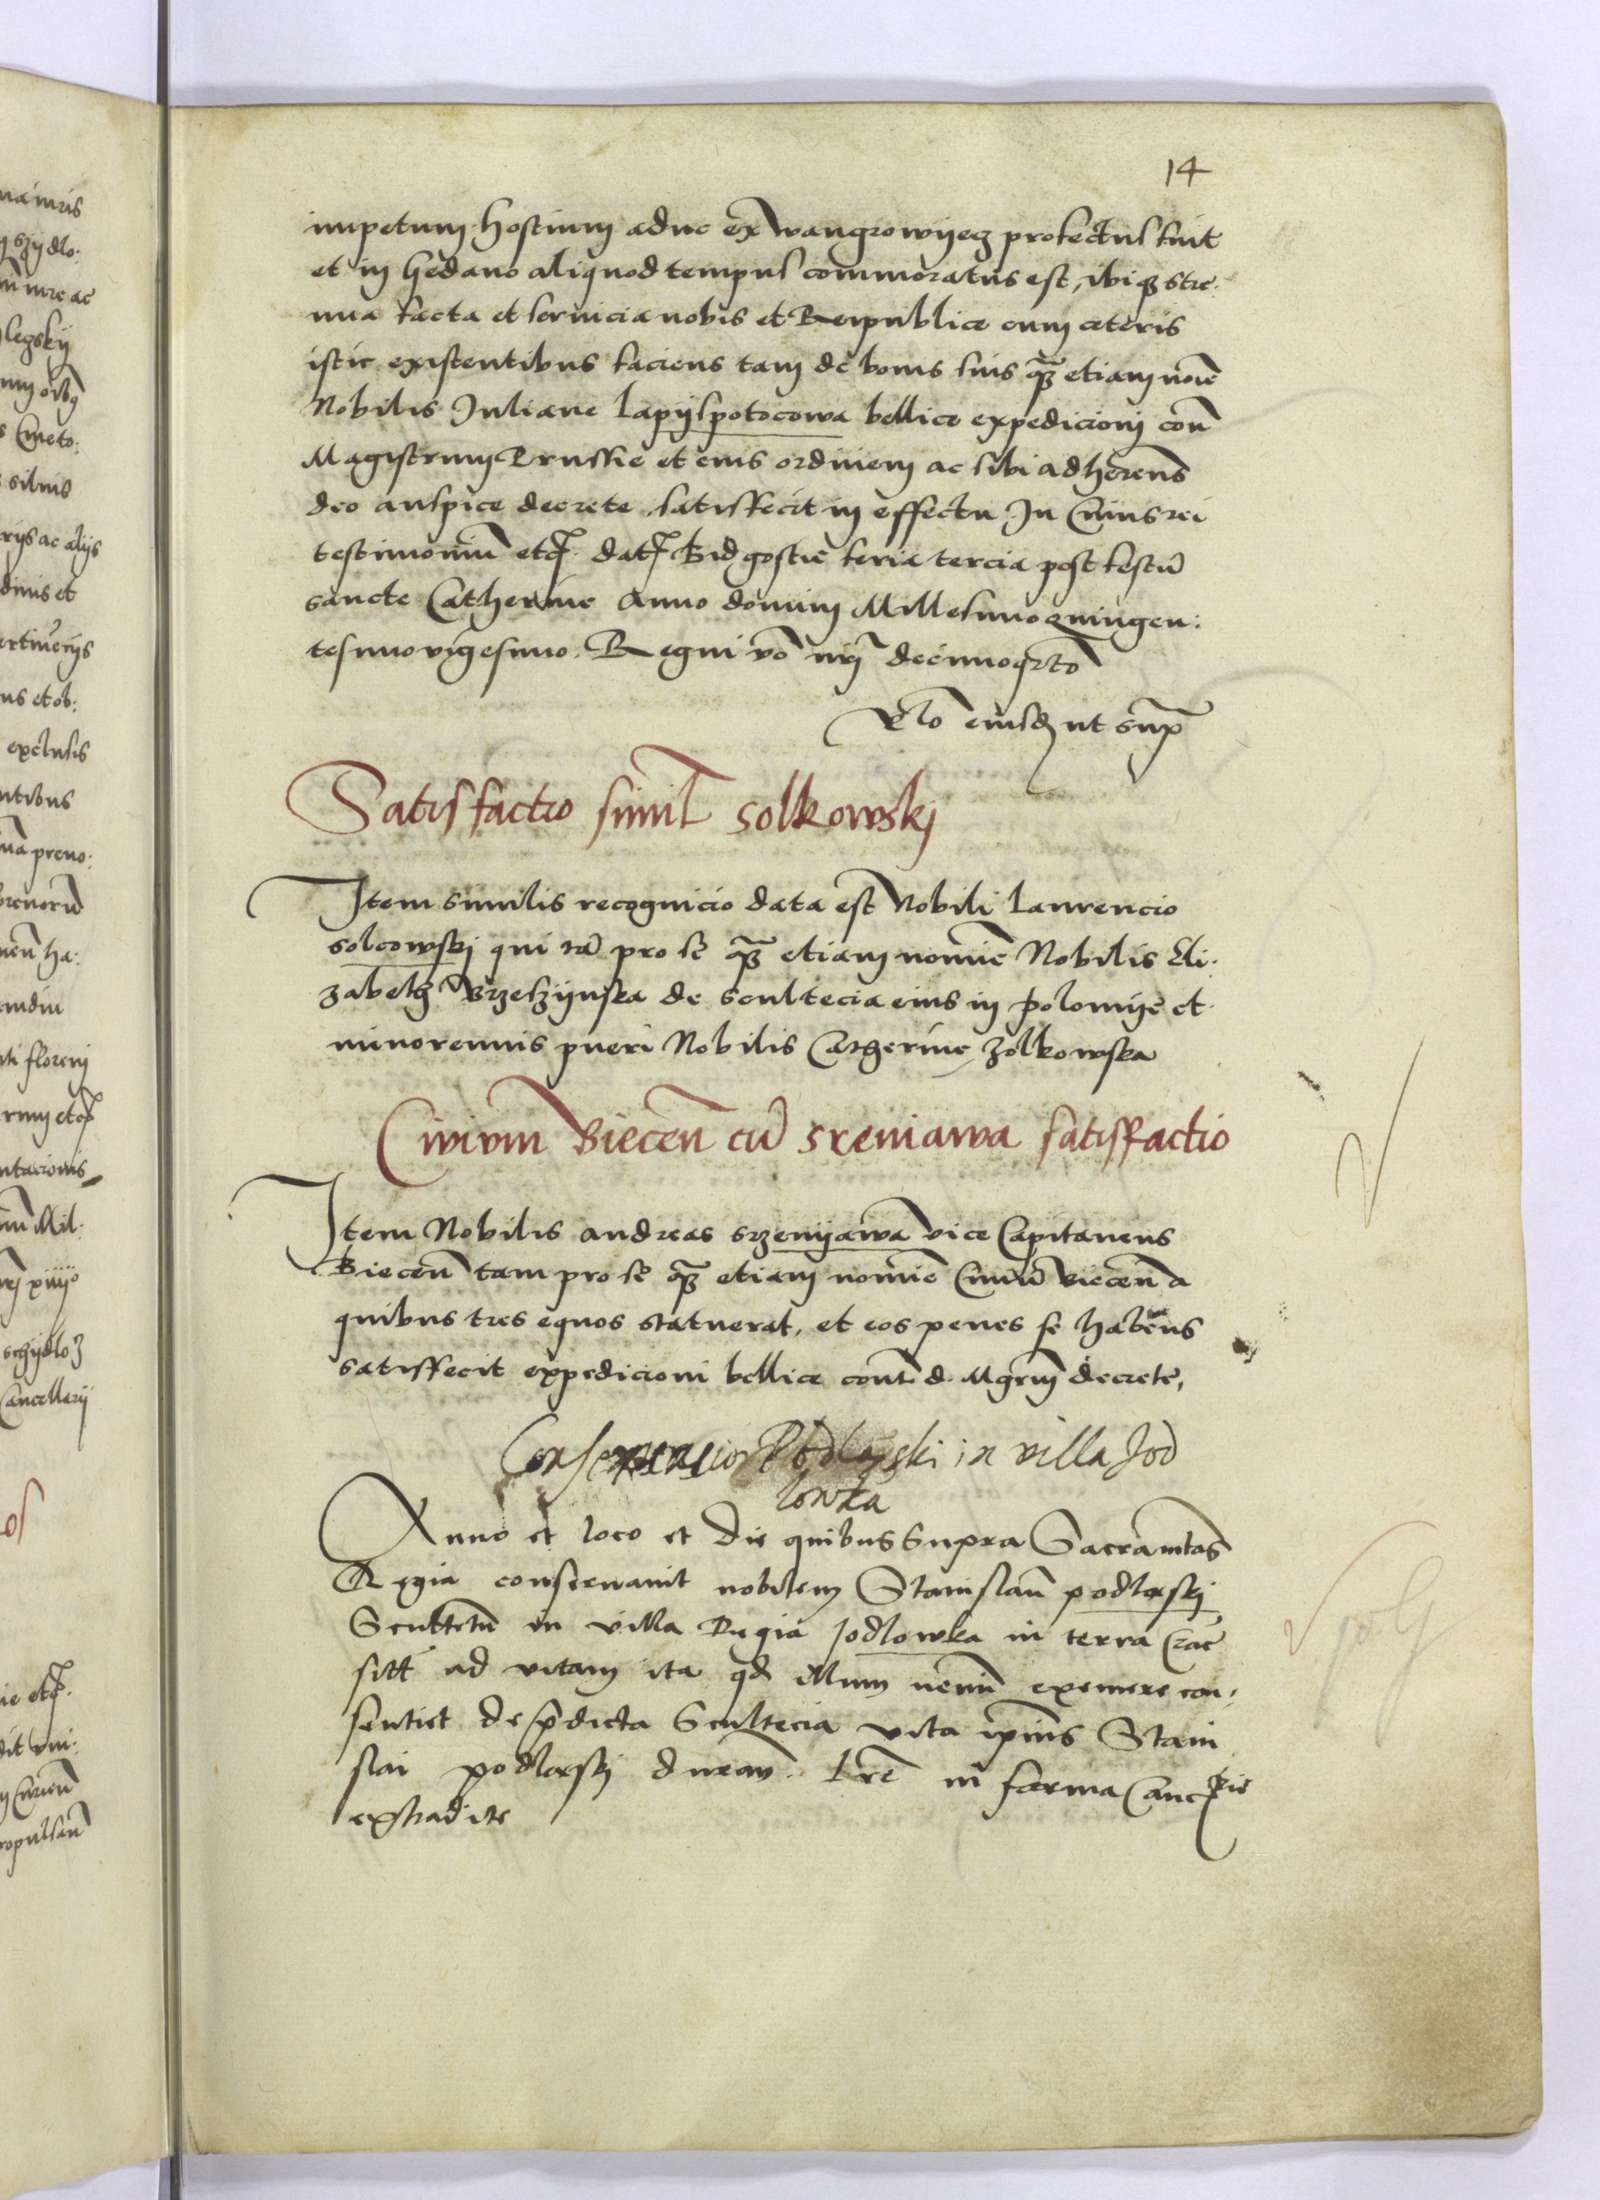 14
impetum hostium aduc ex wangrowyecz profectus fuit
et in Gedano aliquod tempus commoratus est, ibiqz stre:
nua facta et seruicia nobis et Reipublice cum ceteris
istic existentibus faciens tam de bonis suis qz etiam noie
Nobilis Juliane Lapyspotocowa bellice expedicioni con
Magistrum Prussie et eius ordinem ac sibi adherens
deo auspice decrete satisfecit in effectu In Cuius rei
testimonium etc. dat Bidgostie feria tercia post festu
sancte Catherine Anno domini Millesimo quingen:
tesimo vigesimo. Regni vo nri decimoqrto
Rlo eiusdz ut supra
Satisfactio simil solkowskj
Item similis recognicio data est Nobili Laurencio
solcowskj qui ta pro se qz etiam nomine Nobilis Eli:
zabetz Brzeszynska de scultecia eius in polomye et
minorennis pueri Nobilis Catherine zolkowska
Civium Biecen cu sreniawa satisfactio
Item Nobilis Andreas srzenyawa vice Capitaneus
Biecen tam pro se qz etiam nomine Ciuiu Biecen a
quibus tres equos statuerat, et eos penes se habens
satisfecit expedicioni bellice cont d. Mgrm decrete,
in villa Jod
lowka
Anno et loco et die quibus supra Sacra mtas
Regia conseruauit nobilem Stanislau podleskj
Scultetu in villa Regia Jodlowka in terra Crac
sitt ad vitam ita qd illum nemi exemere con:
sentiet de pdicta Scultecia vita ipius Stani
slai podleskj duran. Lre in forma Canc rie
extradite